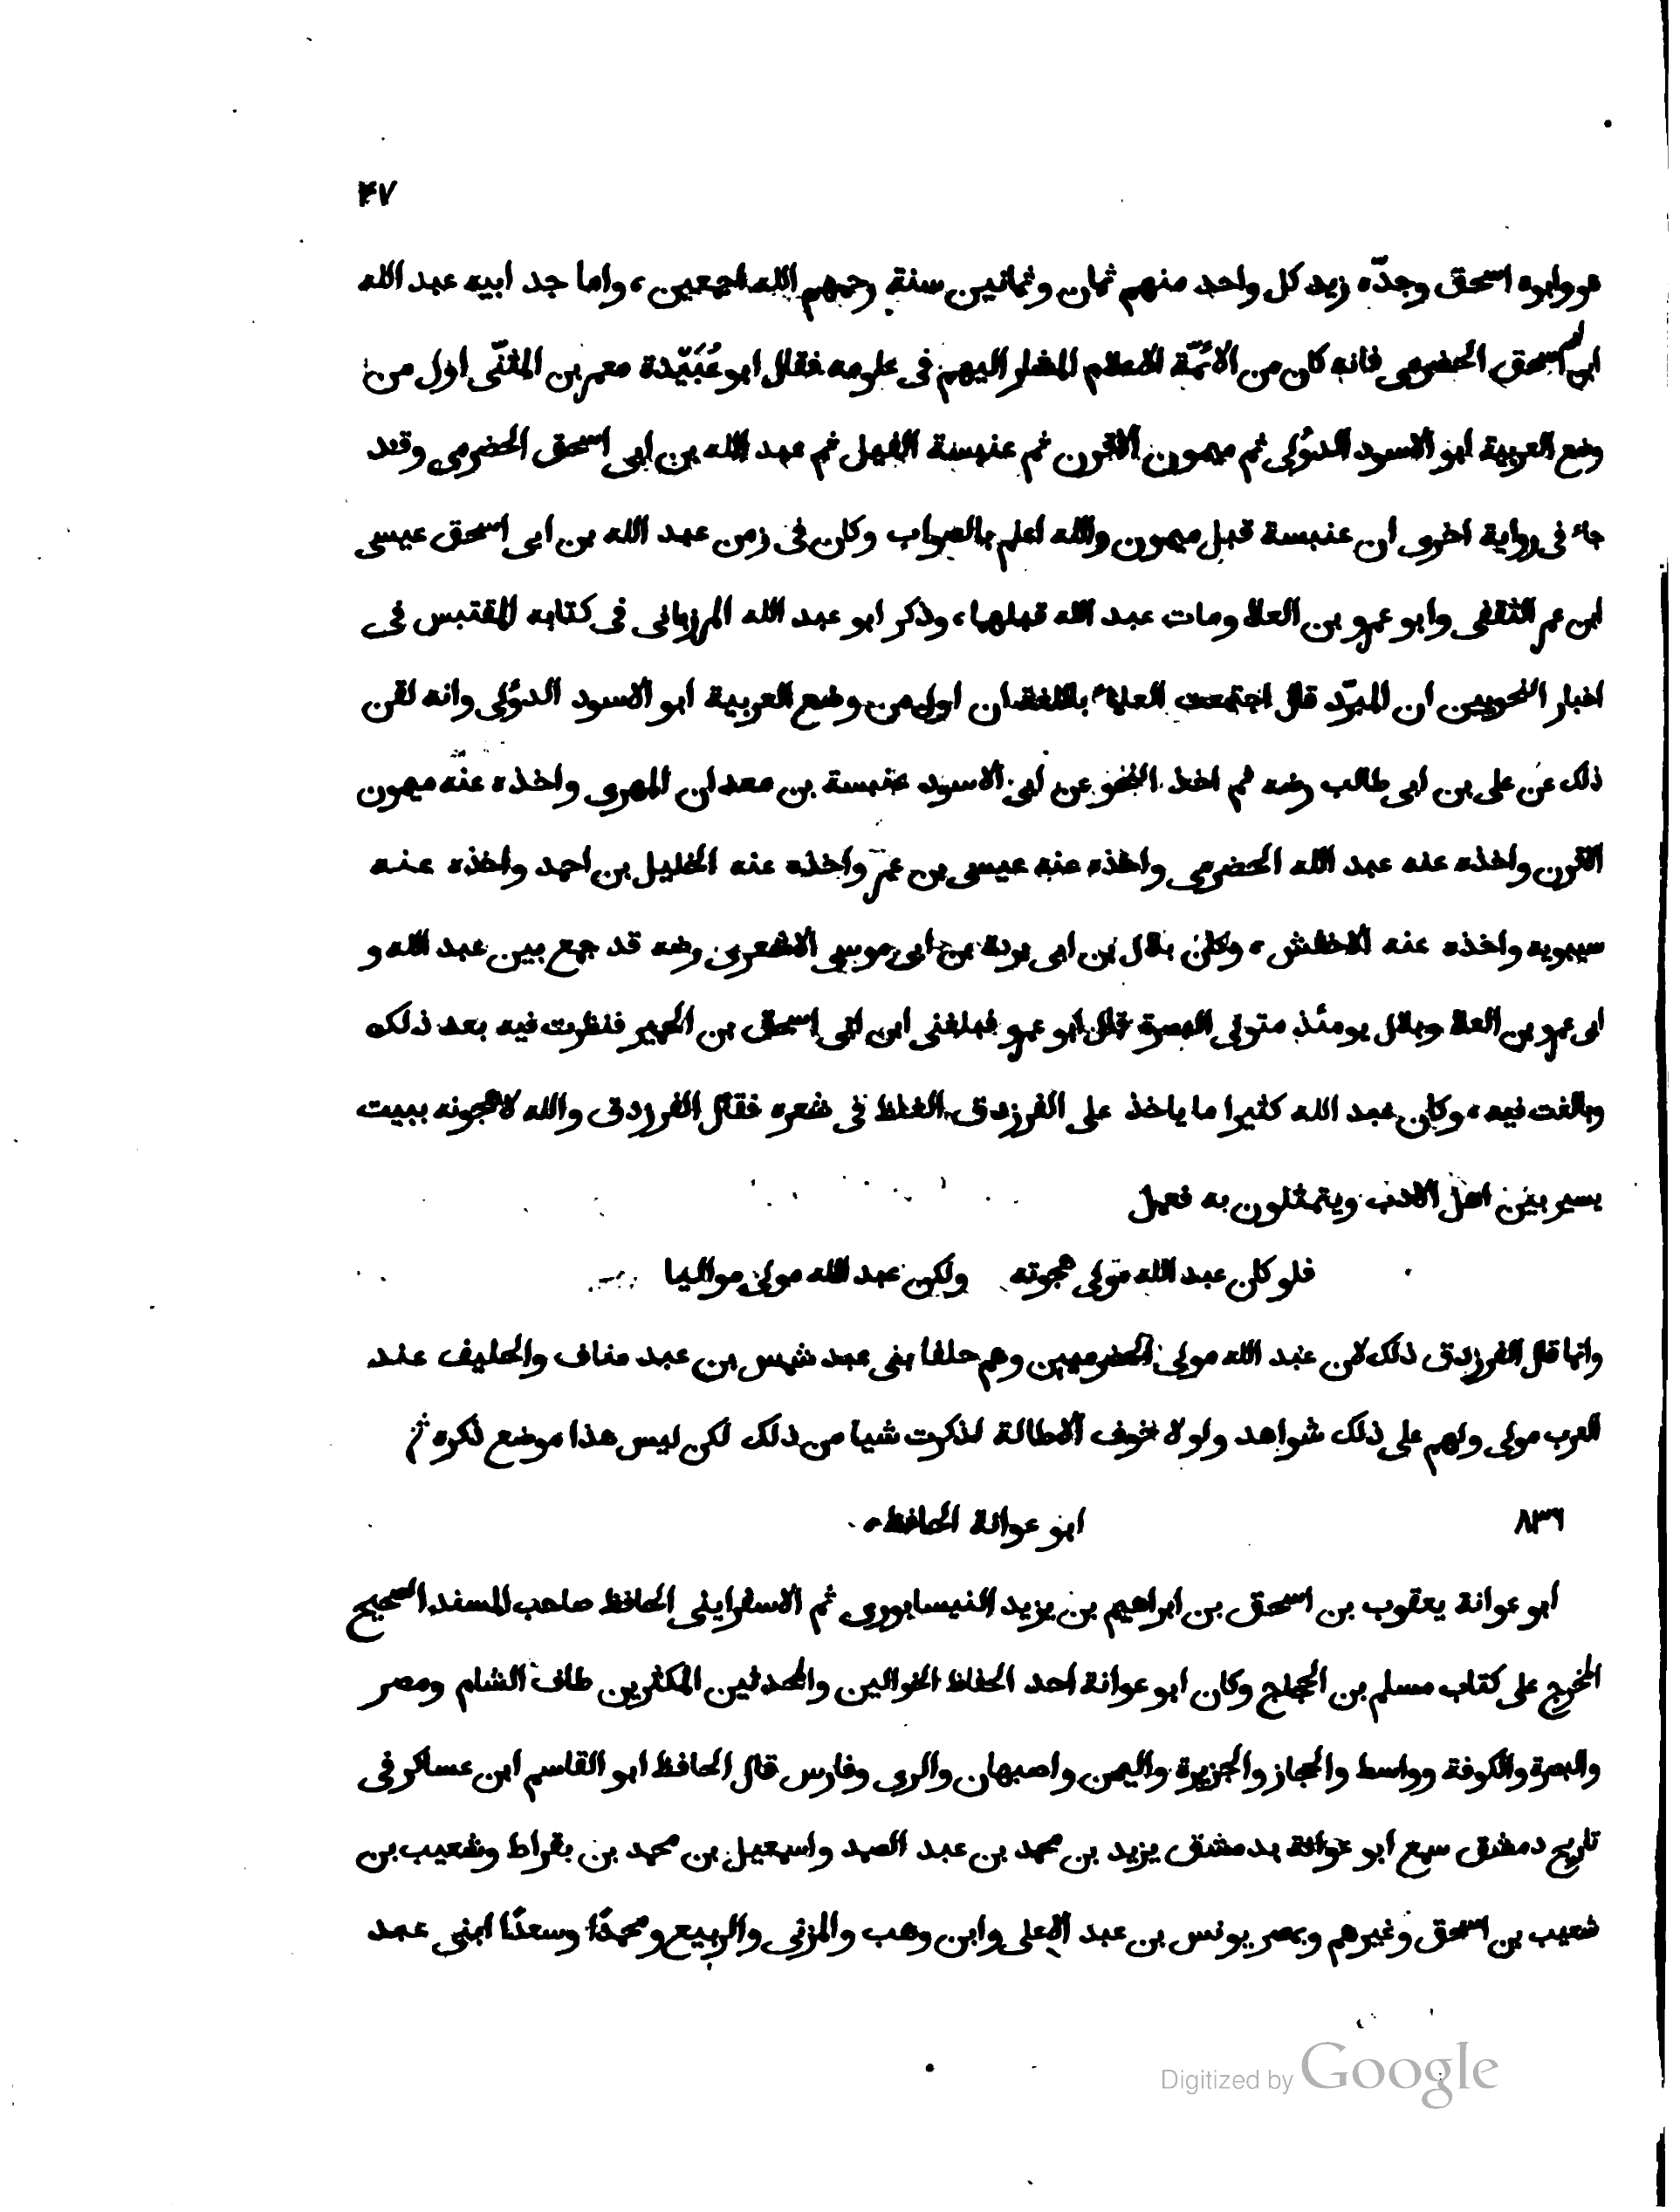 ۴۷
هو وابوه اسحق وجدّه زيد كل واحد منهم ثمان وثمانين سنة رحمهم الله اجمعين، واما جد ابيه عبد الله
ابن ابى اسحق الحضرمى فانه كان من الائمّة الاعلام المشار اليهم فى علومه فقال ابو عُبَيّدة معمر بن المثنّى اول من
وضع العربية ابو الاسود الدؤلى ثم ميمون الاقرن ثم عنبسة الفيل ثم عبد الله بن ابى اسحق الحضرمى وقد
جاء فى رواية اخرى ان عنبسة قبل ميمون والله اعلم بالصواب وكان فى زمن عبد الله بن ابى اسحق عيسى
ابن عمر الثقفى وابو عمرو بن العلا ومات عبد الله قبلهما، وذكر ابو عبد الله المرزبانى فى كتابه المقتبس فى
اخبار النحويين ان المبرّد قال اجتمعت العلماء باللغة ان اول من وضع العربية ابو الاسود الدؤلى وانه لقن
ذلك عن على بن ابى طالب رضه ثم اخذ النحو عن ابى الاسود عنبسة بن معدان المهرى واخذه عنه ميمون
الاقرن واخذه عنه عبد الله الحضرمى واخذه عنه عيسى بن عمر واخذه عنه الخليل بن احمد واخذه عنه
سيبويه واخذه عنه الاخفش، وكان بلال بن ابى بردة بن ابى موسى الاشعرى رضه قد جمع بين عبد الله و
ابى عمرو بن العلا وبلال يومئذ متولى البصرة قال ابو عمرو فغلبنى ابن ابى اسحق بن الهمز فنظرت فيه بعد ذلك
وبالغت فيه، وكان عبد الله كثيرا ما ياخذ على الفرزدق الغلظ فى شعره فقال الفرزدق والله لاهجونه ببيت
يسير بين اهل الادب ويتمثلون به فعمل
فلو كان عبد الله مولى هجوته ولكن عبد الله مولى مواليا
وانما قال الفرزدق ذلك لان عبد الله مولى الحضرميين وهم حلفا بنى عبد شمس بن عبد مناف والحليف عند
العرب مولى ولهم على ذلك شواهد ولولا خوف الاطالة لذكرت شيا من ذلك لكن ليس هذا موضع ذكره
٨٣٦ ابو عوانة الحافظ،
ابو عوانة يعقوب بن اسحق بن ابراهيم بن يزيد النيسابورى ثم الاسفراينى الحافظ صاحب المسند الصحيح
المخرج على كتاب مسلم بن الحجاج وكان ابو عوانة احد الحفاظ الجوالين والمحدثين المكثرين طاف الشام ومصر
والبصرة والكوفة وواسط والحجاز والجزيرة واليمن واصبهان والرى وفارس قال الحافظ ابو القاسم ابن عساكر فى
تاريخ دمشق سمع ابو عوانة بدمشق يزيد بن محمد بن عبد الصمد واسمعيل بن محمد بن بقراط وشعيب بن
شعيب بن اسحق وغيرهم وبمصر يونس بن عبد الاعلى وابن وهب والمزنى والربيع ومحمدًا وسعدًا ابنى عبد
Digitized by Google